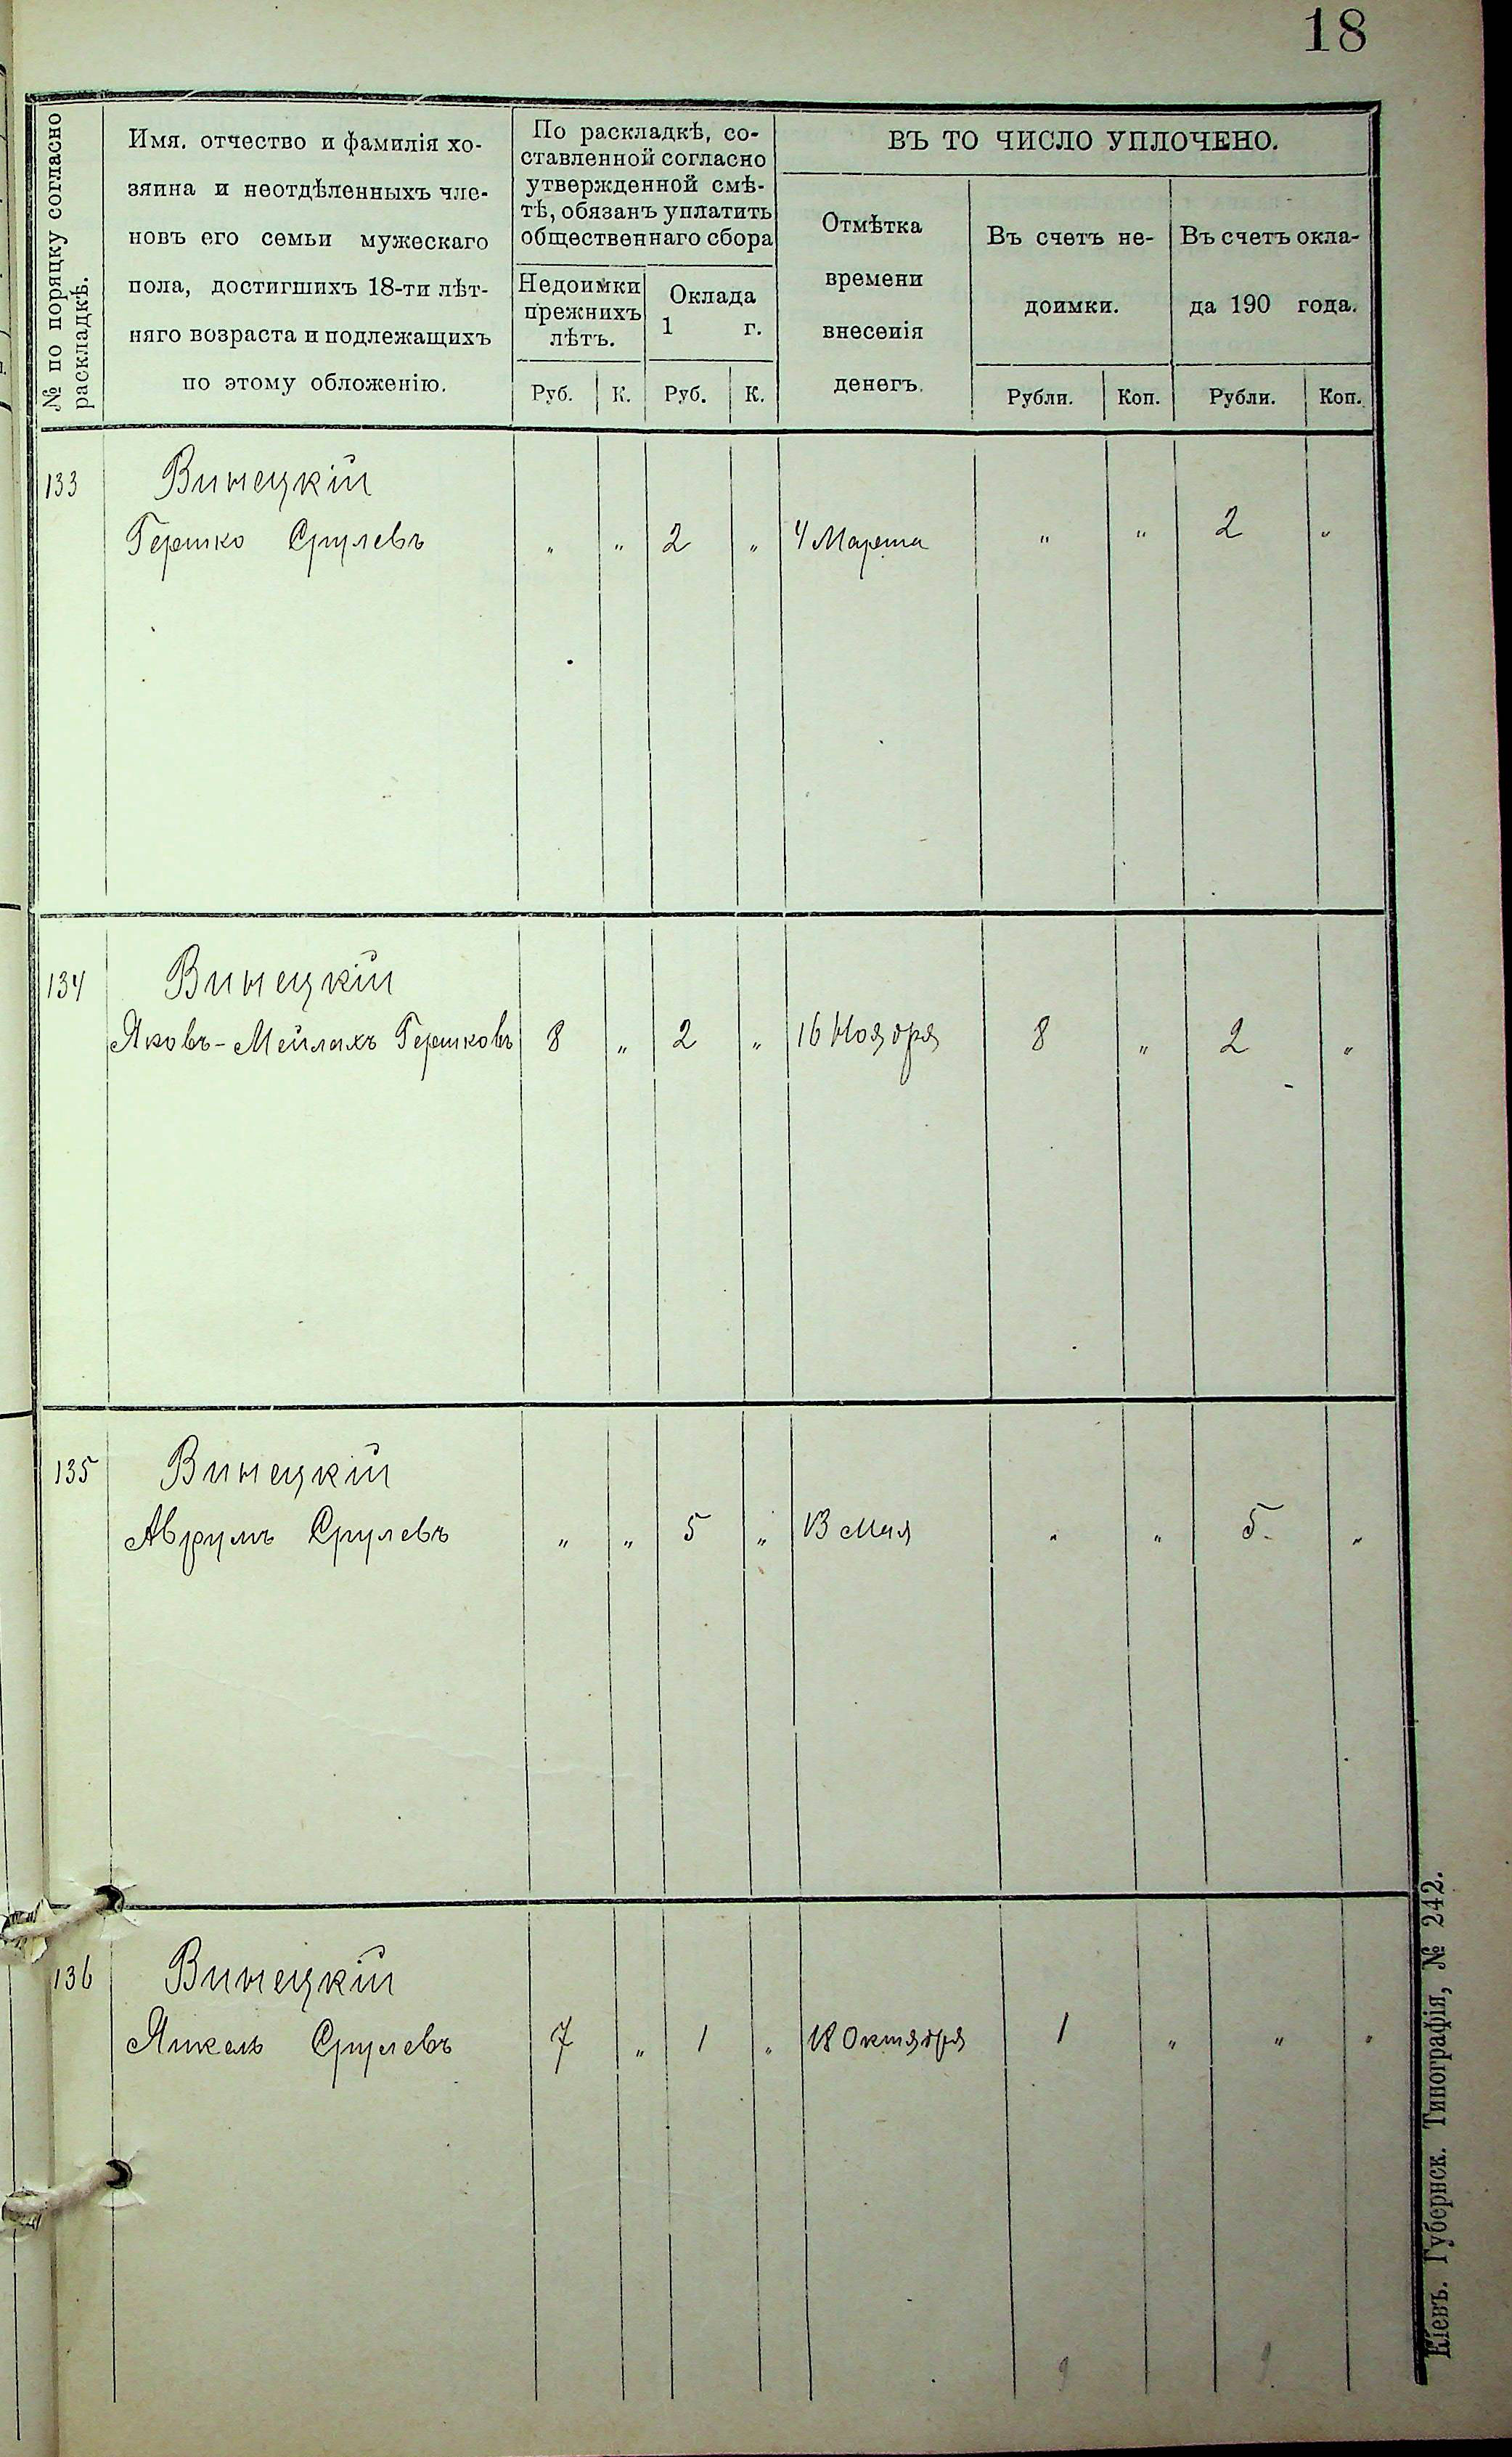 18
№ по порядку согласно
раскладкѣ.
Имя, отчество и фамилія хо-
зяина и неотдѣленныхъ чле-
новъ его семьи мужескаго
пола, достигшихъ 18-ти лѣт-
няго возраста и подлежащихъ
по этому обложенію.
По раскладкѣ, со-
ставленной согласно
утвержденной смѣ-
тѣ, обязанъ уплатить
общественнаго сбора
Недоимки
прежнихъ
лѣтъ.
Оклада
1 г.
Руб. К. Руб. К.
ВЪ ТО ЧИСЛО УПЛОЧЕНО.
Отмѣтка
времени
внесенія
денегъ.
Въ счетъ не-
доимки.
Въ счетъ окла-
да 190 года.
Рубли. Коп. Рубли. Коп.
133 Винецкій
Гершко Срулевъ „ „ 2 „ 4 Марта „ „ 2 „
134 Винецкій
Яковъ-Мейлахъ Гершковъ 8 „ 2 „ 16 Ноября 8 „ 2 „
135 Винецкій
Аврумъ Срулевъ „ „ 5 „ 13 Мая „ „ 5 „
136 Винецкій
Янкель Срулевъ 7 „ 1 „ 18 Октября 1 „ „ „
9 9
Кіевъ. Губернск. Типографія, № 242.